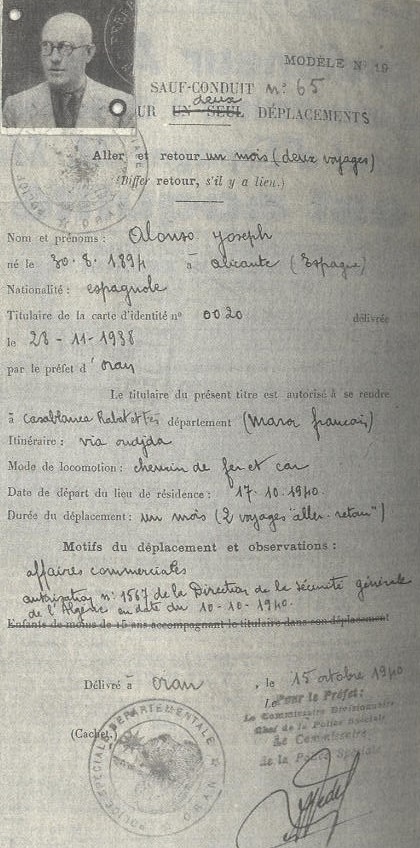 MODÈLE N° 19
SAUF-CONDUIT n° 65
deux
UR UN SEUL DÉPLACEMENTS
Aller et retour un mois (deux voyages)
(Biffer retour, s'il y a lieu.)
Nom et prénoms : Alonso Joseph
né le 30.8.1894 à alicante (Espagne)
Nationalité : espagnole
Titulaire de la carte d'identité n° 0020 délivrée
le 28-11-1938
par le préfet d'oran
Le titulaire du présent titre est autorisé à se rendre
à Casablanca Rabat et Fès département (Maroc français)
Itinéraire : via oudjda
Mode de locomotion : chemin de fer et car
Date de départ du lieu de résidence : 17.10.1940.
Durée du déplacement : un mois (2 voyages "aller-retour")
Motifs du déplacement et observations :
affaires commerciales
autorisation n° 1567 de la Direction de la sécurité générale
de l'Algérie en date du 10-10-1940.
Enfants de moins de 15 ans accompagnant le titulaire dans son déplacement
Délivré à oran, le 15 octobre 1940
Le Pour le Préfet:
Le Commissaire Divisionnaire
Chef de la Police Spéciale
Le Commissaire
de la Police Spéciale
(Cachet.)
POLICE SPÉCIALE DÉPARTEMENTALE